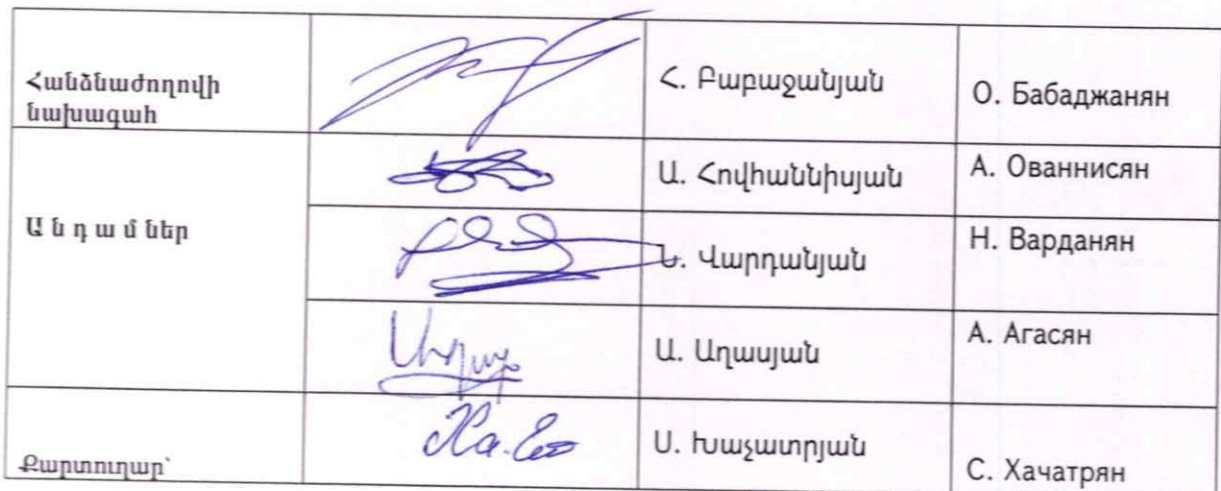 Հանձնաժողովի
նախագահ
Հ. Բաբաջանյան
О. Бабаджанян
Ա. Հովհաննիսյան
А. Ованнисян
Ա ն դ ա մ ներ
Ն. Վարդանյան
Н. Варданян
Ա. Աղասյան
А. Агасян
Քարտուղար՝
Ս. Խաչատրյան
С. Хачатрян